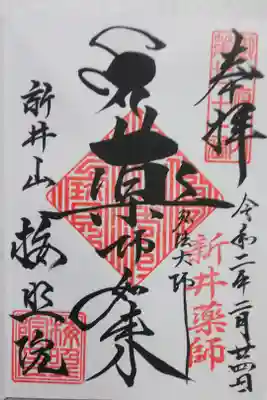 奉拝
令和二年二月廿四日
新井藥師
弘法大師
薬師如来
新井山
梅照院